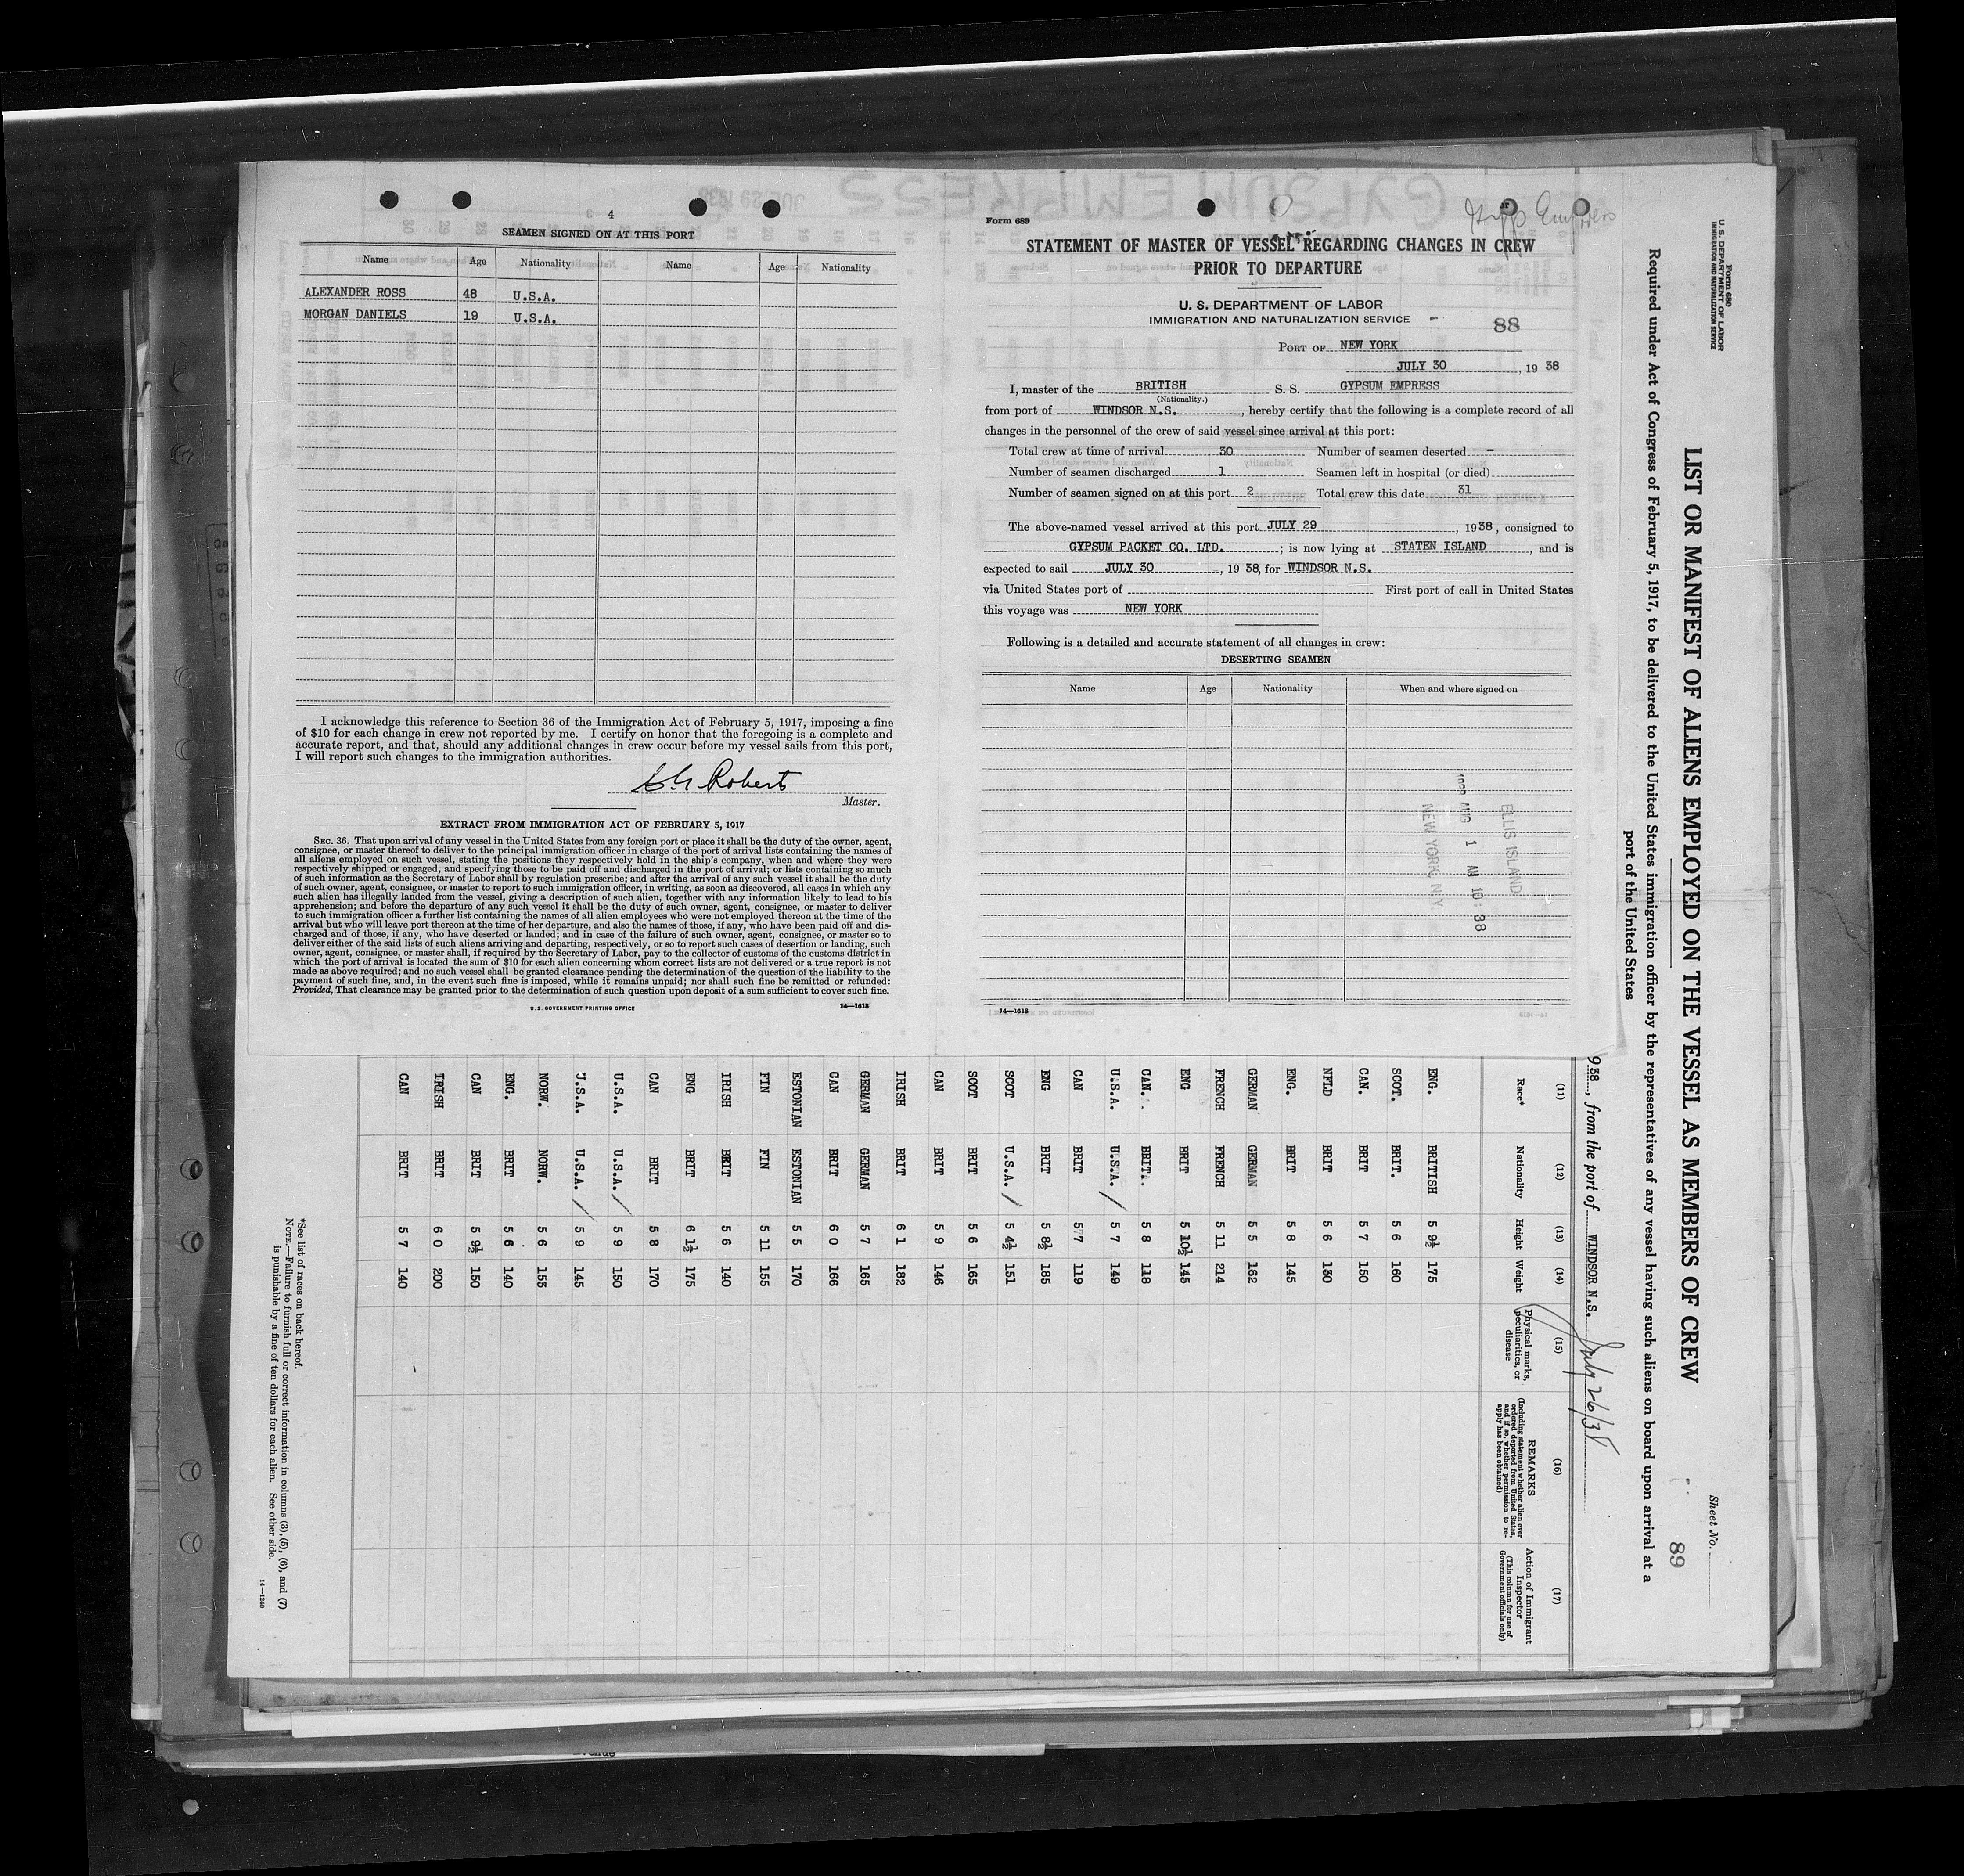 4
SEAMEN SIGNED ON AT THIS PORT
Name Age Nationality Name Age Nationality
ALEXANDER ROSS 48 U.S.A.
MORGAN DANIELS 19 U.S.A.
I acknowledge this reference to Section 36 of the Immigration Act of February 5, 1917, imposing a fine
of $10 for each change in crew not reported by me. I certify on honor that the foregoing is a complete and
accurate report, and that, should any additional changes in crew occur before my vessel sails from this port,
I will report such changes to the immigration authorities.
Roberts
Master.
EXTRACT FROM IMMIGRATION ACT OF FEBRUARY 5, 1917
SEC. 36. That upon arrival of any vessel in the United States from any foreign port or place it shall be the duty of the owner, agent,
consignee, or master thereof to deliver to the principal immigration officer in charge of the port of arrival lists containing the names of
all aliens employed on such vessel, stating the positions they respectively hold in the ship's company, when and where they were
respectively shipped or engaged, and specifying those to be paid off and discharged in the port of arrival; or lists containing so much
of such information as the Secretary of Labor shall by regulation prescribe; and after the arrival of any such vessel it shall be the duty
of such owner, agent, consignee, or master to report to such immigration officer, in writing, as soon as discovered, all cases in which any
such alien has illegally landed from the vessel, giving a description of such alien, together with any information likely to lead to his
apprehension; and before the departure of any such vessel it shall be the duty of such owner, agent, consignee, or master to deliver
to such immigration officer a further list containing the names of all alien employees who were not employed thereon at the time of the
arrival but who will leave port thereon at the time of her departure, and also the names of those, if any, who have been paid off and dis-
charged and of those, if any, who have deserted or landed; and in case of the failure of such owner, agent, consignee, or master so to
deliver either of the said lists of such aliens arriving and departing, respectively, or so to report such cases of desertion or landing, such
owner, agent, consignee, or master shall, if required by the Secretary of Labor, pay to the collector of customs of the customs district in
which the port of arrival is located the sum of $10 for each alien concerning whom correct lists are not delivered or a true report is not
made as above required; and no such vessel shall be granted clearance pending the determination of the question of the liability to the
payment of such fine, and, in the event such fine is imposed, while it remains unpaid; nor shall such fine be remitted or refunded:
Provided, That clearance may be granted prior to the determination of such question upon deposit of a sum sufficient to cover such fine.
U. S. GOVERNMENT PRINTING OFFICE 14—1613
Form 689
STATEMENT OF MASTER OF VESSEL REGARDING CHANGES IN CREW
PRIOR TO DEPARTURE
U. S. DEPARTMENT OF LABOR
IMMIGRATION AND NATURALIZATION SERVICE
88
PORT OF NEW YORK
JULY 30, 19 38
I, master of the BRITISH S. S. GYPSUM EMPRESS
(Nationality.)
from port of WINDSOR N.S., hereby certify that the following is a complete record of all
changes in the personnel of the crew of said vessel since arrival at this port:
Total crew at time of arrival 30 Number of seamen deserted -
Number of seamen discharged 1 Seamen left in hospital (or died)
Number of seamen signed on at this port 2 Total crew this date 31
The above-named vessel arrived at this port JULY 29, 1938, consigned to
GYPSUM PACKET CO. LTD.; is now lying at STATEN ISLAND, and is
expected to sail JULY 30, 19 38, for WINDSOR N.S.
via United States port of First port of call in United States
this voyage was NEW YORK
Following is a detailed and accurate statement of all changes in crew:
DESERTING SEAMEN
Name Age Nationality When and where signed on
ELLIS ISLAND
AUG 1 AM 10:38
NEW YORK, N.Y.
14—1613
Form 680
U. S. DEPARTMENT OF LABOR
IMMIGRATION AND NATURALIZATION SERVICE
Sheet No.
89
LIST OR MANIFEST OF ALIENS EMPLOYED ON THE VESSEL AS MEMBERS OF CREW
Required under Act of Congress of February 5, 1917, to be delivered to the United States immigration officer by the representatives of any vessel having such aliens on board upon arrival at a
port of the United States
938, from the port of WINDSOR N.S. July 26/38
(11) (12) (13) (14) (15) (16) (17)
Race* Nationality Height Weight Physical marks, peculiarities, or disease REMARKS (Including statement whether alien ever ordered deported from United States, and if so, whether permission to re-apply has been obtained) Action of Immigrant Inspector (This column for use of Government officials only)
ENG. BRITISH 5 9½ 175
SCOT. BRIT. 5 6 160
CAN. BRIT 5 7 150
NFLD BRIT 5 6 130
ENG. BRIT 5 8 145
GERMAN GERMAN 5 5 162
FRENCH FRENCH 5 11 214
ENG BRIT 5 10½ 145
CAN. BRIT. 5 8 118
U.S.A. U.S.A. 5 7 149
CAN BRIT 5 7 119
ENG BRIT 5 8½ 185
SCOT U.S.A. 5 4½ 151
SCOT BRIT 5 6 165
CAN BRIT 5 9 146
IRISH BRIT 6 1 182
GERMAN GERMAN 5 7 165
CAN BRIT 6 0 166
ESTONIAN ESTONIAN 5 5 170
FIN FIN 5 11 155
IRISH BRIT 5 6 140
ENG BRIT 6 1½ 175
CAN BRIT 5 8 170
U.S.A. U.S.A. 5 9 150
U.S.A. U.S.A. 5 9 145
NORW. NORW. 5 6 155
ENG. BRIT 5 6 140
CAN BRIT 5 9½ 150
IRISH BRIT 6 0 200
CAN BRIT 5 7 140
*See list of races on back hereof.
NOTE.—Failure to furnish full or correct information in columns (3), (5), (6), and (7)
is punishable by a fine of ten dollars for each alien. See other side.
14—1240